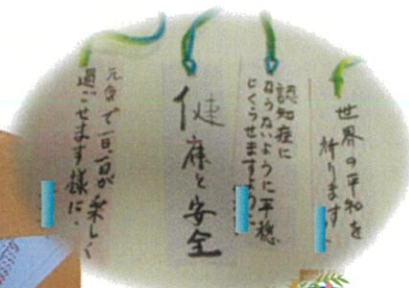 世界の平和を
祈ります
認知症に
ならないように平穏
にくらせますように
健康と安全
元気で一日一日が楽しく
過ごせます様に、